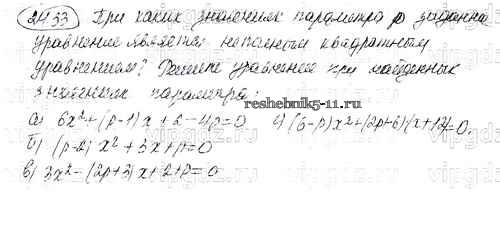 24.33 При каких значениях параметра p заданное
уравнение является неполным квадратным
уравнением? Решите уравнение при найденных
значениях параметра:
а) 6x²+(p-1)x+2-4p=0 г) (6-p)x²+(2p+6)(x+12)=0.
reshebnik5-11.ru
б) (p-2)x²+3x+p=0
в) 3x²-(2p+3)x+2+p=0